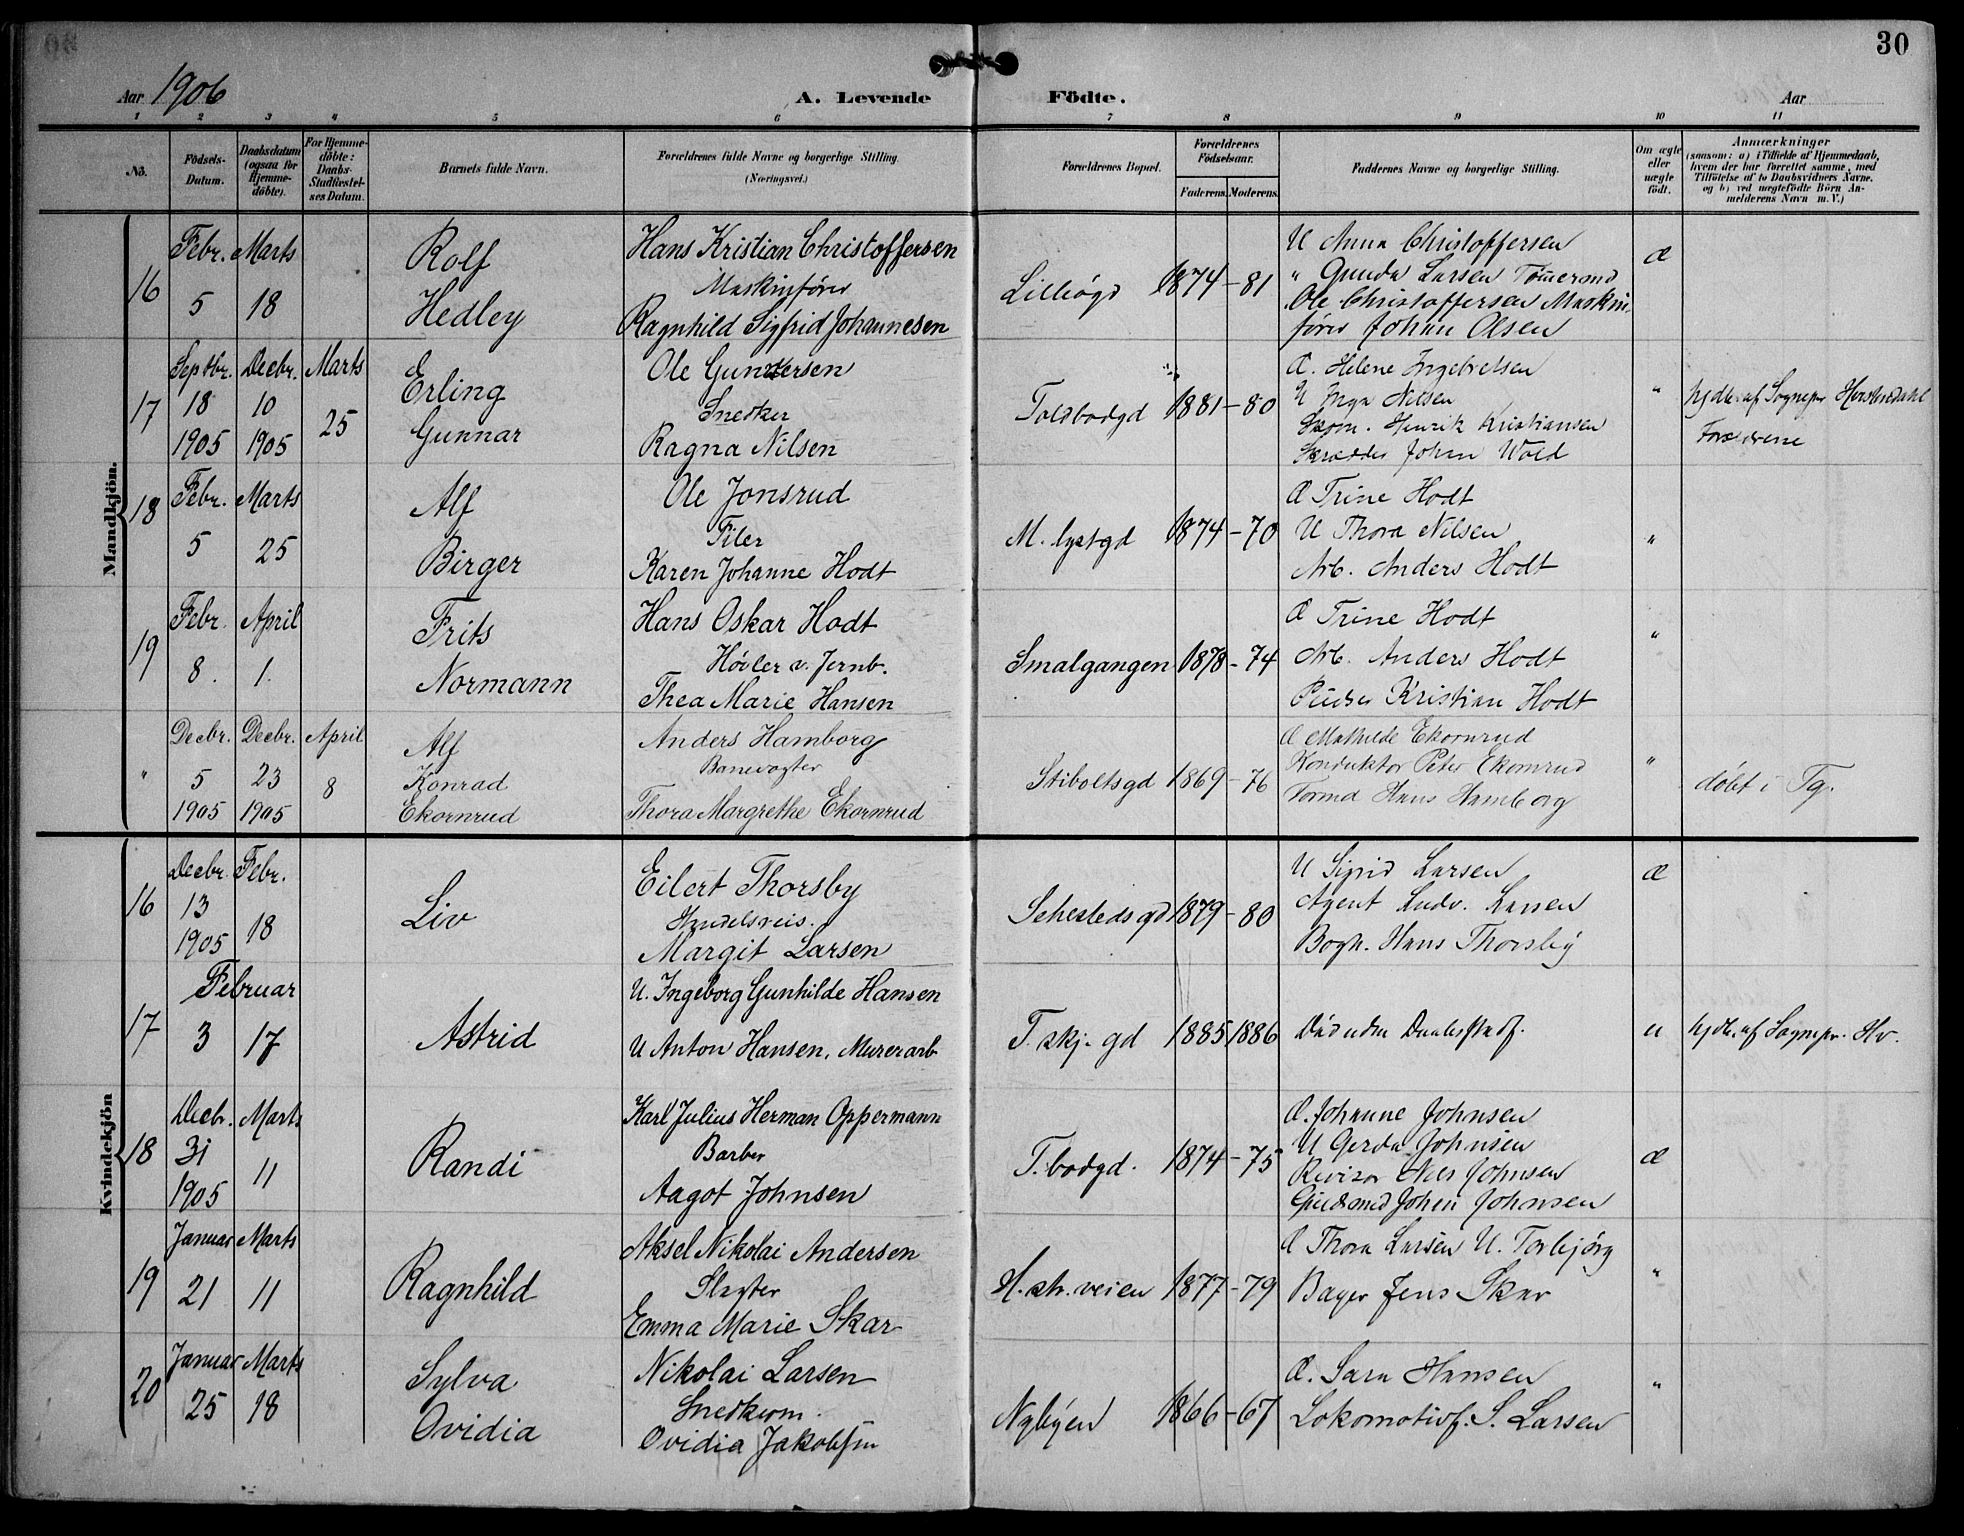 30
Aar 1906
A. Levende Födte.
Aar
1 2 3 4 5 6 7 8 9 10 11
No.
Födsels-Datum.
Daabsdatum (ogsaa for Hjemme-döbte).
For Hjemme-döbte: Daabs-Stadfæstel-ses Datum.
Barnets fulde Navn.
Forældrenes fulde Navne og borgerlige Stilling.
(Næringsvei.)
Forældrenes Bopæl.
Forældrenes Födselsaar.
Faderens. Moderens.
Faddernes Navne og borgerlige Stilling.
Om ægte eller uægte födt.
Anmærkninger
(saasom: a) i Tilfælde af Hjemmedaab,
hvem der har forrettet samme, med
Tilföielse af to Daabsvidners Navne,
og b) ved uægtefödte Börn An-
melderens Navn m. V.)
Mandkjön.
16
Febr. 5
Marts 18
Rolf
Hedley
Hans Kristian Christoffersen
Maskinfører
Ragnhild Sigfrid Johannesen
Lilleøgd
1874 - 81
U Anna Christoffersen
" Gunda Larsen Tømermd
Ole Christoffersen Maskin-
fører Johan Olsen
Æ
17
Septbr. 18 1905
Decbr. 10 1905
Marts 25
Erling
Gunnar
Ole Gundersen
Snedker
Ragna Nilsen
Toldbodgd
1881 - 80
Æ. Helene Ingebretsen
U Inga Nilsen
Skom. Henrik Kristiansen
Skrædder Johan Wold
"
hjdb. af Sognepr
Forældrene
18
Febr. 5
Marts 25
Alf
Birger
Ole Jonsrud
Filer
Karen Johanne Hodt
M. lystgd
1874 - 70
Æ Trine Hodt
U Thora Nilsen
Arb. Anders Hodt
"
19
Febr. 8.
April 1.
Frits
Normann
Hans Oskar Hodt
Høvler v. Jernb.
Thea Marie Hansen
Smalgangen
1878 - 74
Æ Trine Hodt
Arb. Anders Hodt
Pudser Kristian Hodt
"
"
Decbr. 5 1905
Decbr. 23 1905
April 8
Alf
Konrad
Ekornrud
Anders Hamborg
Banevogter
Thora Margrethe Ekornrud
Stiboltsgd
1869 - 76
Æ Mathilde Ekornrud
Konduktør Peter Ekornrud
Formd Hans Hamborg
"
døbt i Tg.
Kvindekjön
16
Decbr. 13 1905
Febr. 18
Liv
Eilert Thorsby
Handelsreis.
Margit Larsen
Sehestedsgd
1879 - 80
U Sigrid Larsen
Agent Ludv. Larsen
Bogh. Hans Thorsby
Æ
17
Februar
3 17
Astrid
U. Ingeborg Gunhilde Hansen
U Anton Hansen, Murerarb
T. skj. gd
1885 1886
Död uden Daabsstadf.
u
hjdb. af Sognepr. Hv.
18
Decbr. 31 1905
Marts 11
Randi
Karl Julius Herman Oppermann
Barber
Aagot Johnsen
T. bodgd.
1874 - 75
Æ. Johanne Johnsen
U Gerda Johnsen
Revisor Nils Johnsen
Guldsmed Johan Johnsen
Æ
19
Januar 21
Marts 11
Ragnhild
Aksel Nikolai Andersen
Slagter
Emma Marie Skar
H. str. veien
1877 - 79
Æ Thora Larsen U. Torbjørg
Bager Jens Skar
"
20
Januar 25
Marts 18
Sylva
Ovidia
Nikolai Larsen
Snedkerm.
Ovidia Jakobsen
Nybyen
1866 - 67
Æ. Sara Hansen
Lokomotivf. S. Larsen
"